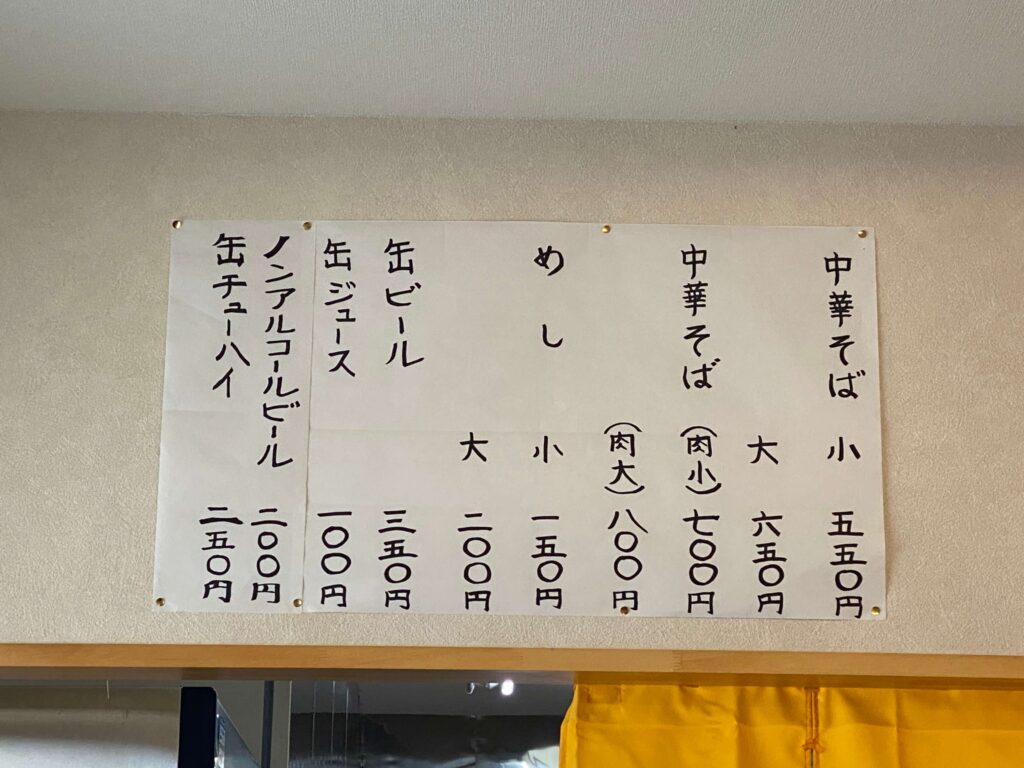 中華そば 小 五五〇円
大 六五〇円
中華そば (肉小) 七〇〇円
(肉大) 八〇〇円
めし 小 一五〇円
大 二〇〇円
缶ビール 三五〇円
缶ジュース 一〇〇円
ノンアルコールビール 二〇〇円
缶チューハイ 二五〇円